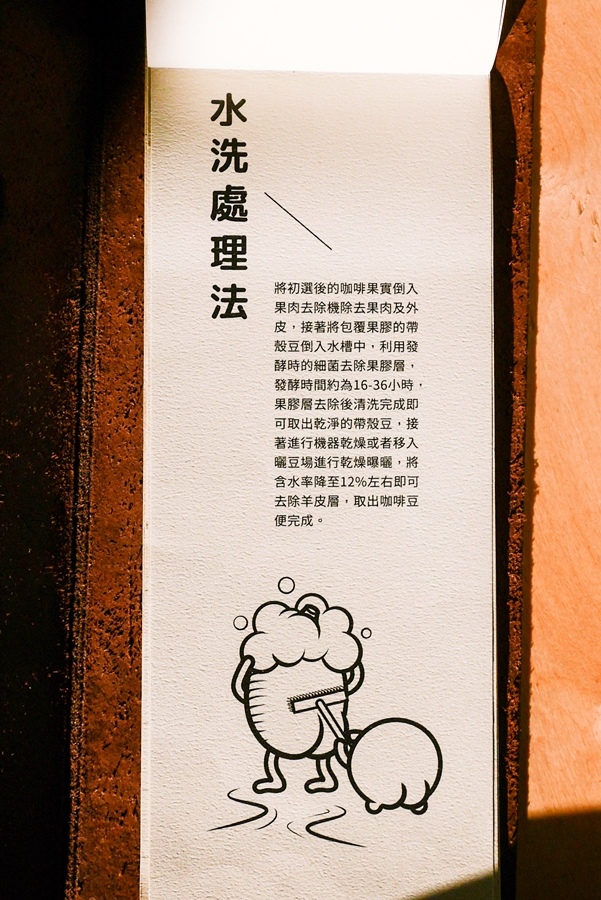 水洗處理法
將初選後的咖啡果實倒入
果肉去除機除去果肉及外
皮，接著將包覆果膠的帶
殼豆倒入水槽中，利用發
酵時的細菌去除果膠層，
發酵時間約為16-36小時，
果膠層去除後清洗完成即
可取出乾淨的帶殼豆，接
著進行機器乾燥或者移入
曬豆場進行乾燥曝曬，將
含水率降至12%左右即可
去除羊皮層，取出咖啡豆
便完成。